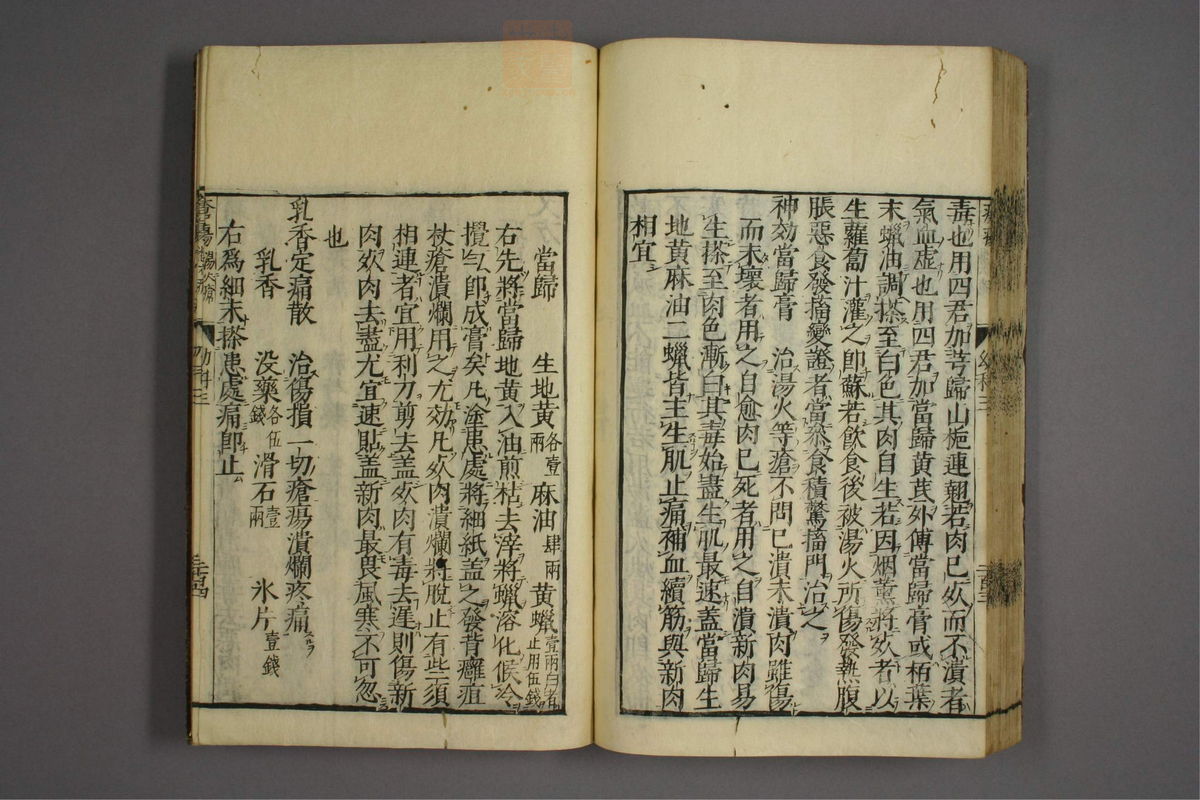 毒也用四君加芎歸山梔連翹若肉已㱠而不潰者
氣血虚也用四君加當歸黄芪外傅當歸膏或栢葉
末蠟油調搽至白色其肉自生若因烟薫將㱠者以
生蘿蔔汁灌之即蘇若飲食後被湯火所傷發熱腹
脹惡食發搐變證者當叅食積驚搐門治之
神効當歸膏 治湯火等瘡不問已潰未潰肉雖傷
而未壞者用之自愈肉已死者用之自潰新肉易
生搽至肉色漸白其毒始盡生肌最速盖當歸生
地黄麻油二蠟皆主生肌止痛補血續筋與新肉
相宜
當歸 生地黄各壹兩 麻油肆兩 黄蠟壹兩白者止用伍錢
右先將當歸地黄入油煎枯去滓將蠟溶化候冷
攪匀即成膏矣凡塗患處將細紙盖之發背癰疽
杖瘡潰爛用之尤効凡㱠肉潰爛將脫止有些須
相連者宜用利刀剪去盖㱠肉有毒去遲則傷新
肉㱠肉去盡尤宜速貼盖新肉最畏風寒不可忽
也
乳香定痛散 治傷損一切瘡瘍潰爛疼痛
乳香 没藥各伍錢 滑石壹兩 氷片壹錢
右爲細末搽患處痛即止